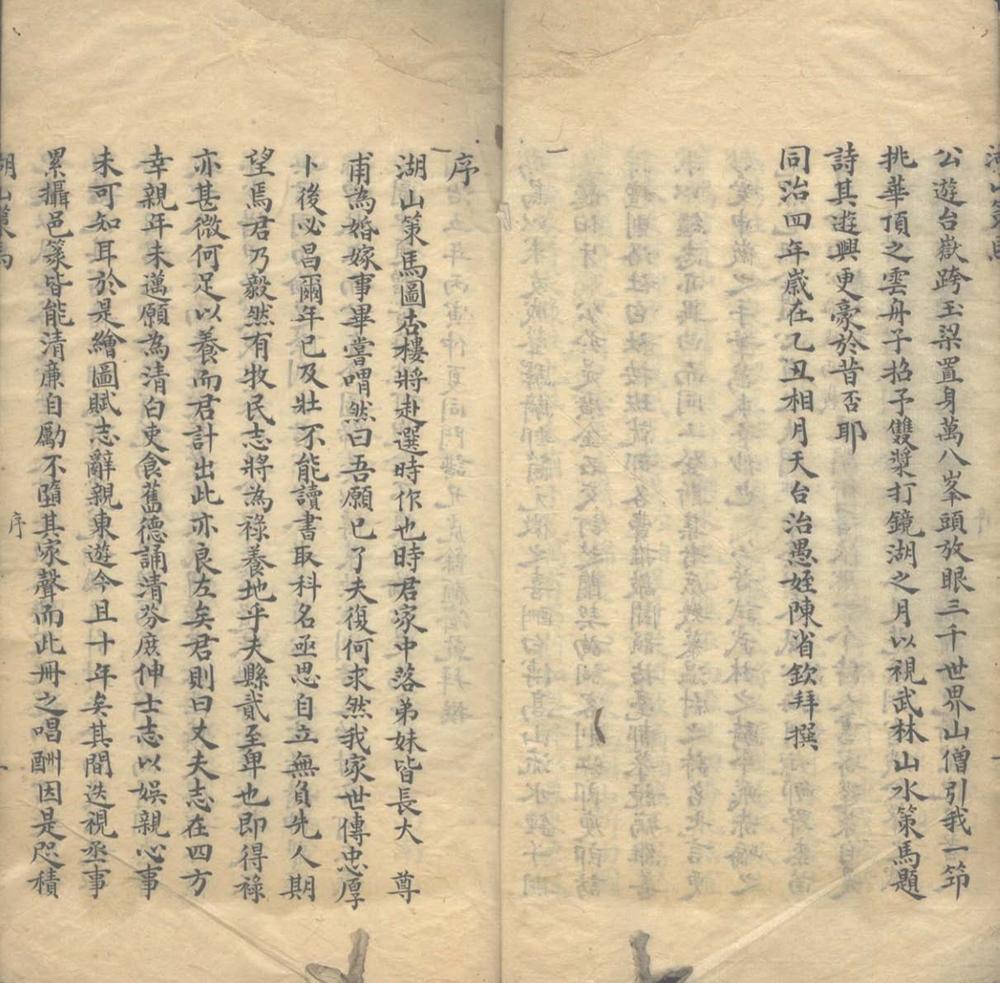 湖山策馬
公遊台嶽跨玉梁置身萬八峯頭放眼三千世界山僧引我一筇
挑華頂之雲舟子招予雙槳打鏡湖之月以視武林山水策馬題
詩其遊興更豪於昔否耶
同治四年歲在乙丑相月天台治愚姪陳省欽拜撰
序
湖山策馬圖杏樓將赴選時作也時君家中落弟妹皆長大 尊
甫為婚嫁事畢嘗喟然曰吾願已了夫復何求然我家世傳忠厚
卜後必昌爾年已及壯不能讀書取科名亟思自立無負先人期
望焉君乃毅然有牧民志將為祿養地乎夫縣貳至卑也即得祿
亦甚微何足以養而君計出此亦良左矣君則曰丈夫志在四方
幸親年未邁願為清白吏食舊德誦清芬庶伸士志以娛親心事
未可知耳於是繪圖賦志辭親東遊今且十年矣其間迭視丞事
累攝邑篆皆能清廉自勵不墮其家聲而此冊之唱酬因是咫積
湖山策馬
序
一